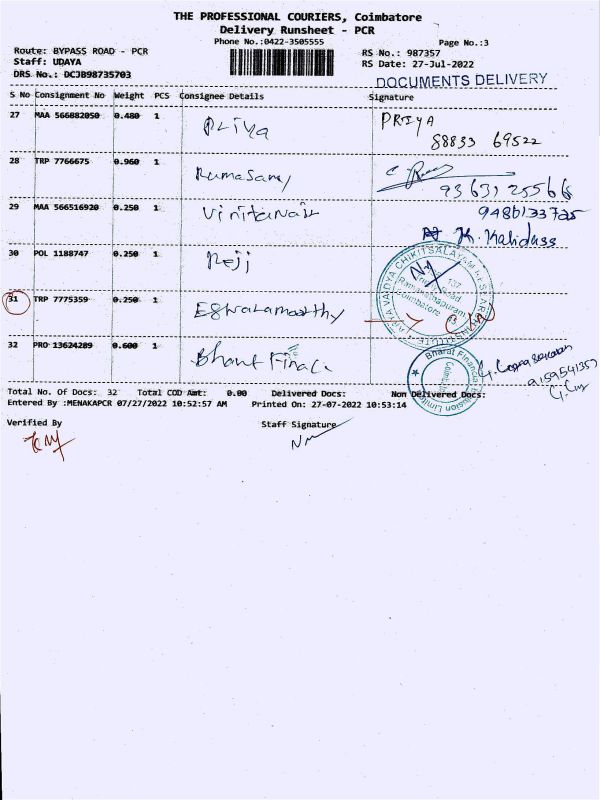 THE PROFESSIONAL COURIERS, Coimbatore
Delivery Runsheet - PCR
Phone No.:0422-3505555
Page No.:3
Route: BYPASS ROAD - PCR
RS No.: 987357
Staff: UDAYA
RS Date: 27-Jul-2022
DRS No.: DCJB98735703
DOCUMENTS DELIVERY
S No Consignment No Weight PCS Consignee Details Signature
27 MAA 566882050 0.480 1 Priya PRIYA
88833 69522
28 TRP 7766675 0.960 1 Ramasamy
93631 25566
29 MAA 566516920 0.250 1 Vinitanair 9486133725
K. Kalidass
30 POL 1188747 0.250 1 Reji
31 TRP 7775359 0.250 1 Eswaramoorthy
32 PRO 13624289 0.600 1 Bharat Finac.
Bharat Financial
9159541357
Total No. Of Docs: 32 Total COD Amt: 0.00 Delivered Docs: Non Delivered Docs:
Entered By :MENAKAPCR 07/27/2022 10:52:57 AM Printed On: 27-07-2022 10:53:14
Verified By
Staff Signature